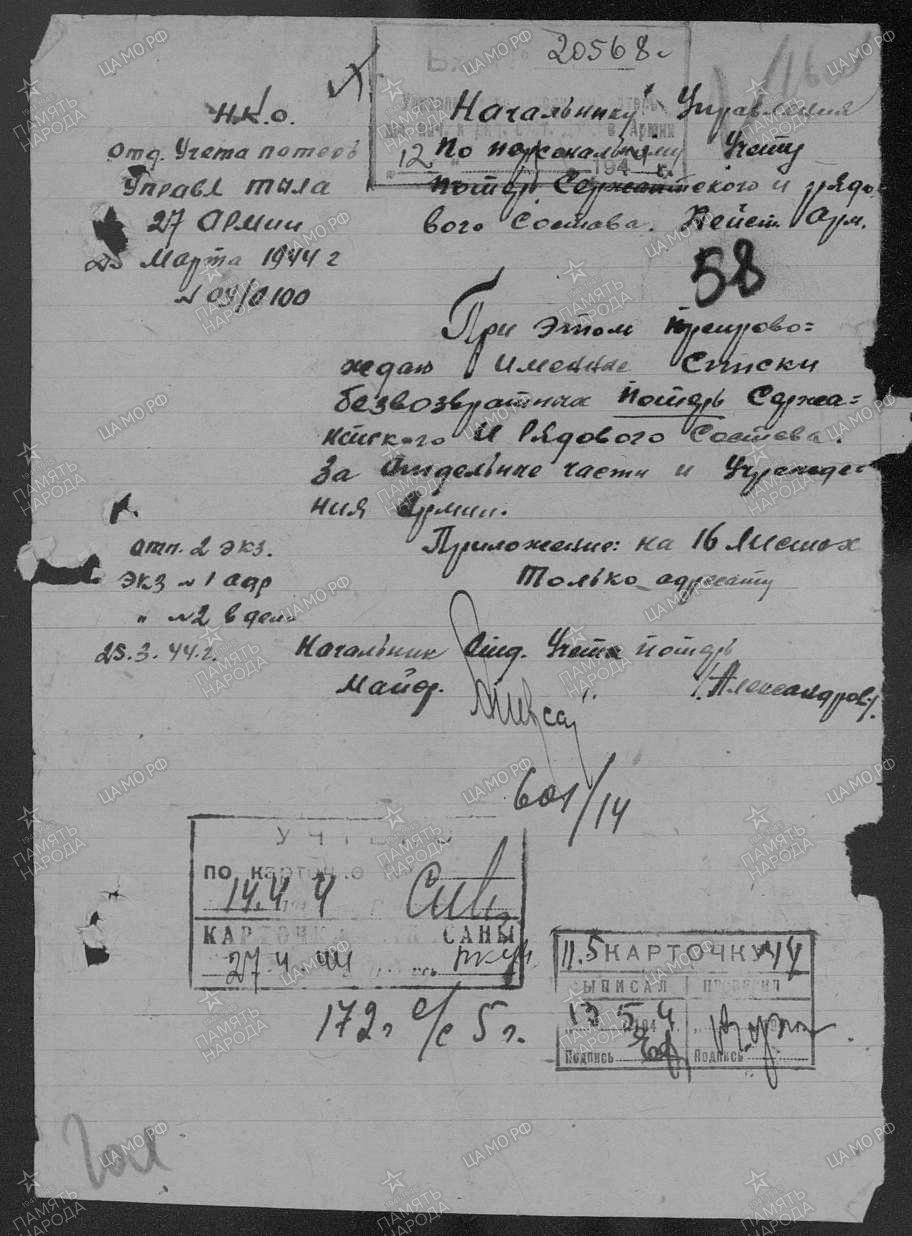 20568
Н.К.О.
Отд. Учета потерь
Управл тыла
27 Армии
25 Марта 1944 г
№ 04/0100
Начальнику Управления
По персональному Учету
Потерь Сержантского и рядо-
вого Состава. Дейст. Арм.
12 194 г.
58
При этом препрово=
ждаю Именные Списки
безвозвратных Потерь Сержа=
нтского И Рядового Состава.
За Отдельные части и Учрежде-
ния Армии.
Приложение: на 16 листах
Только адресату
отп. 2 экз.
Экз № 1 адр
" №2 в дело
25.3.44.г.
Начальник Отд. Учета Потерь
Майор.
/Александров/
601/14
УЧТЕНО
по карточке
14.4 4
КАРТОЧКА САНЫ
27.4.44
172г с/с 5г.
11.5 КАРТОЧКУ 44
ВЫПИСАЛ ПРОВЕРИЛ
13 5 194 4 г.
Подпись Подпись
ЦАМО.РФ
ПАМЯТЬ НАРОДА